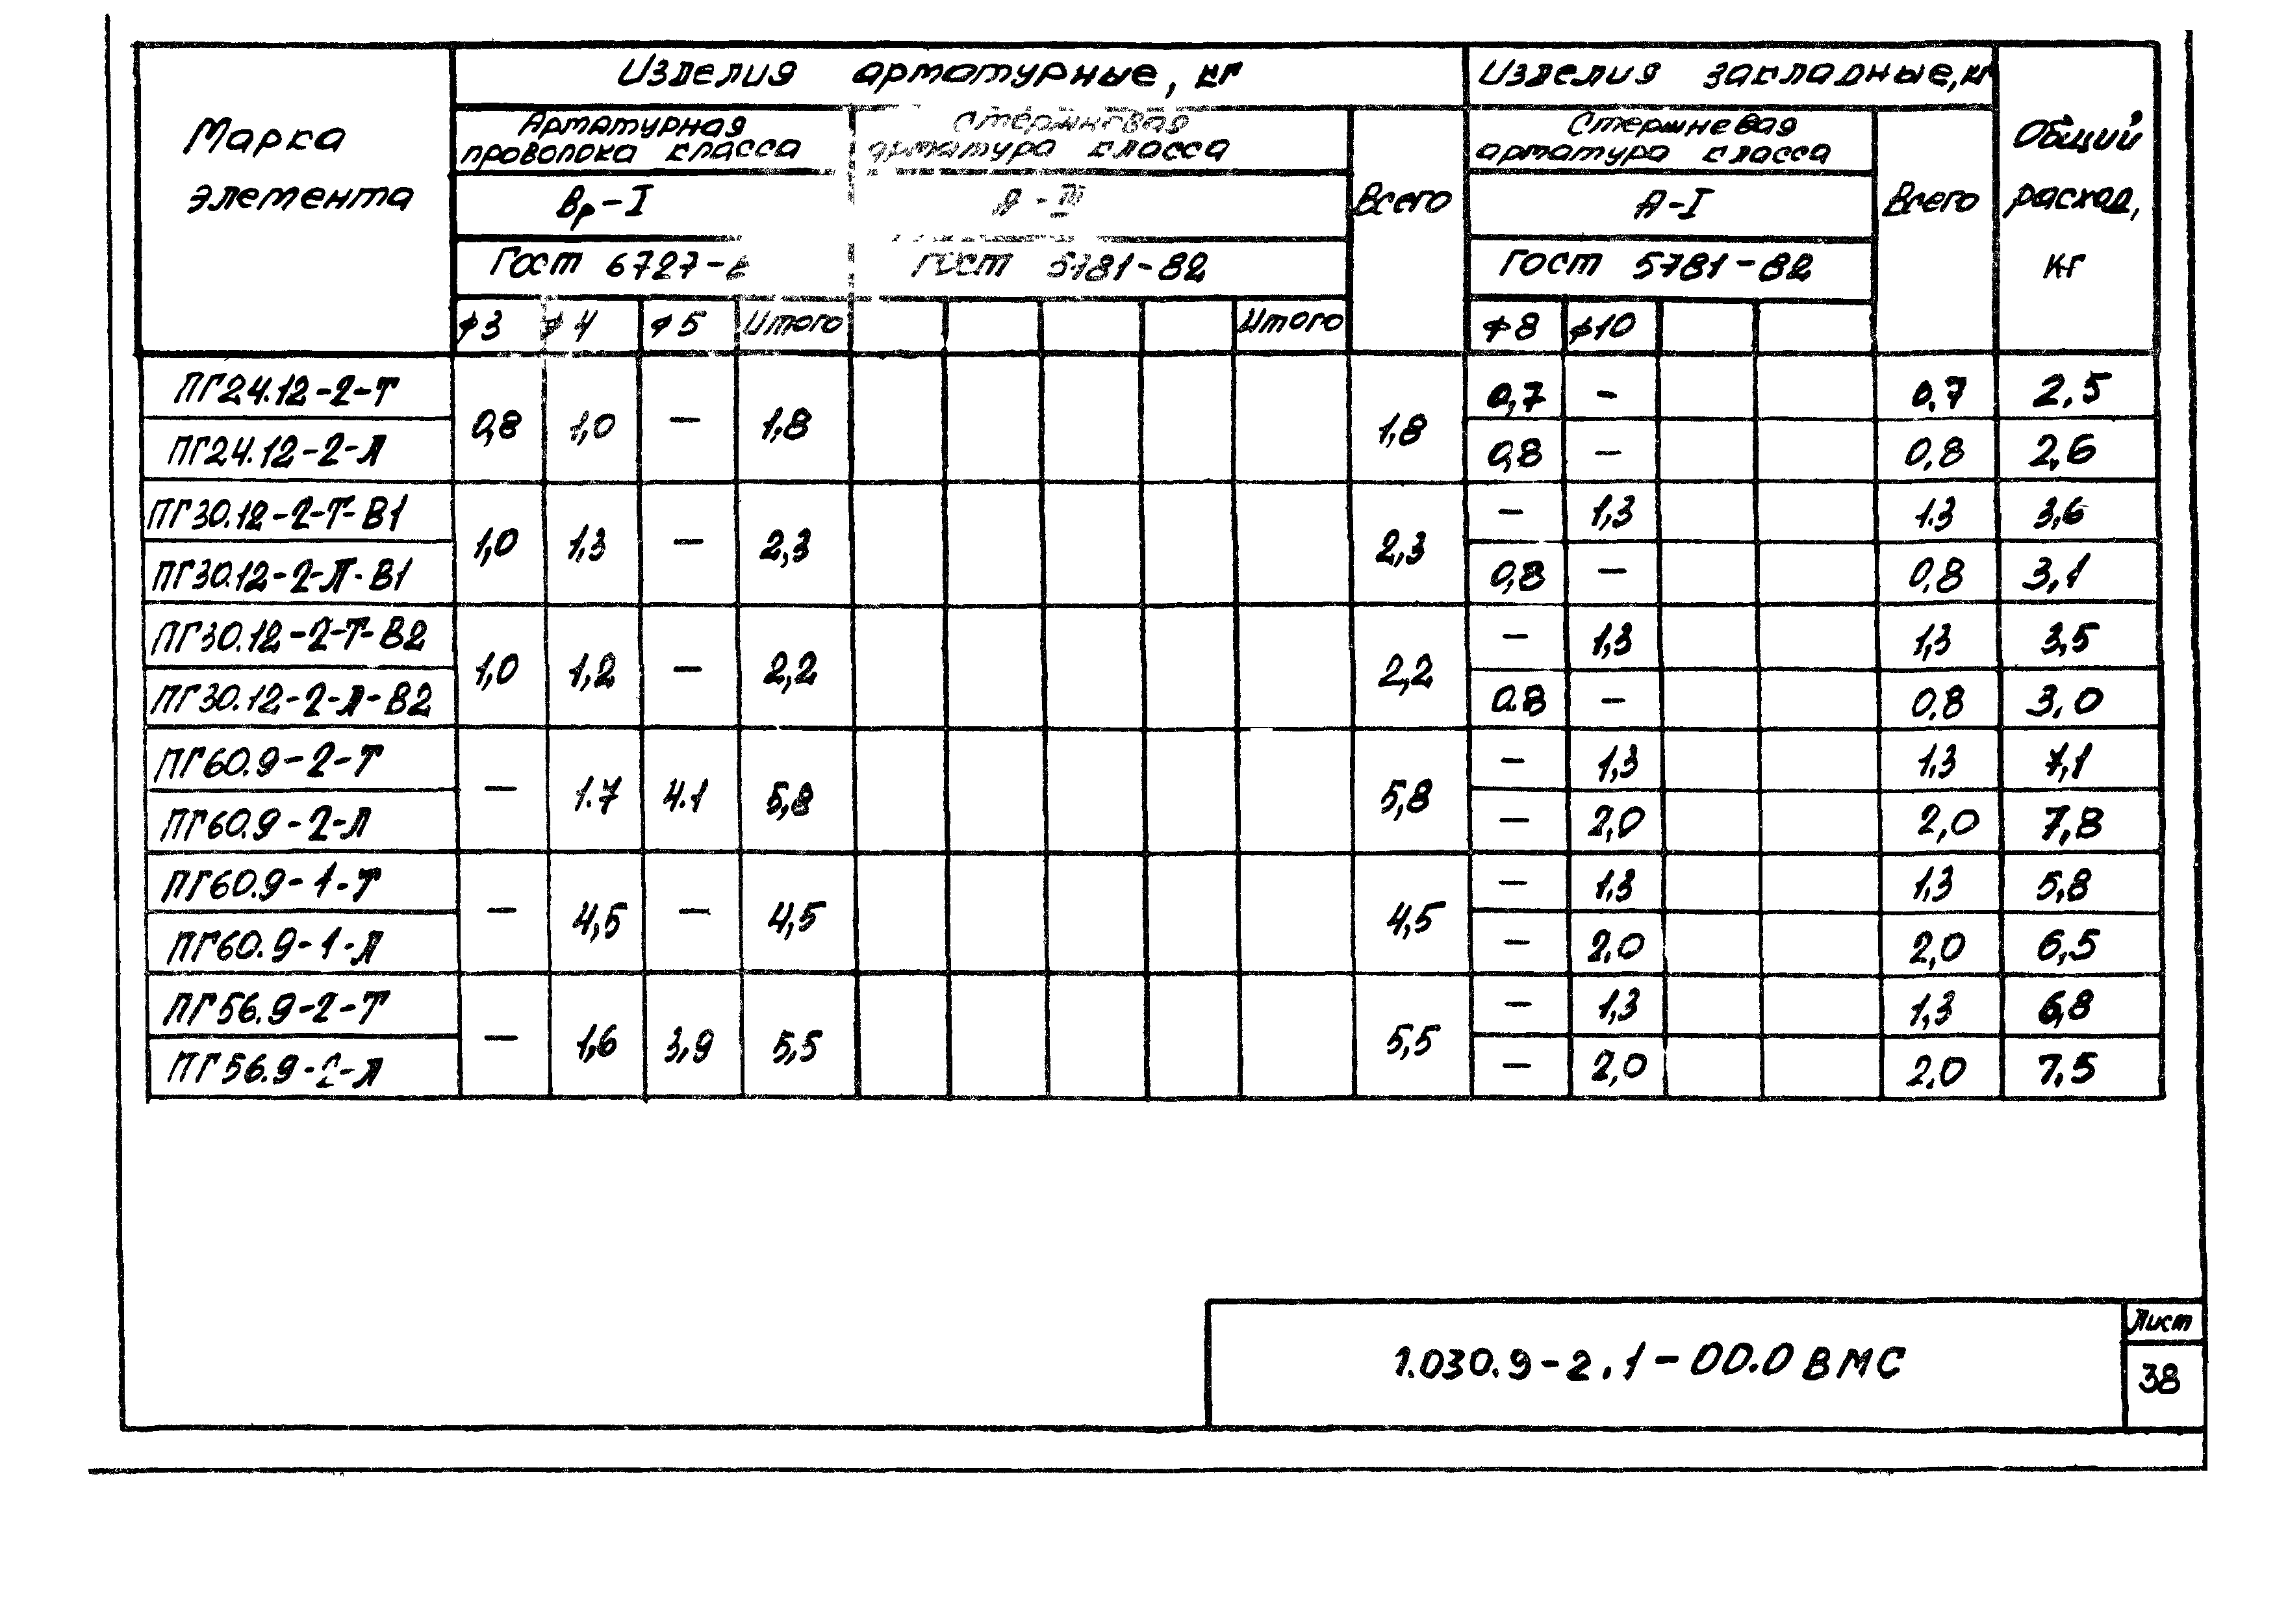 Марка
элемента
Изделия арматурные, кг
Изделия закладные, кг
Общий
расход,
кг
Арматурная
проволока класса
Стержневая
арматура класса
Всего
Стержневая
арматура класса
Всего
Вр-I
А-III
А-I
Гост 6727-8
Гост 5781-82
Гост 5781-82
ф3 ф4 ф5 Итого Итого ф8 ф10
ПГ24.12-2-Т 0,8 1,0 — 1,8 1,8 0,7 - 0,7 2,5
ПГ24.12-2-Л 0,8 — 0,8 2,6
ПГ30.12-2-Т-В1 1,0 1,3 — 2,3 2,3 — 1,3 1.3 3,6
ПГ30.12-2-Л-В1 0,8 — 0,8 3,1
ПГ30.12-2-Т-В2 1,0 1,2 — 2,2 2,2 — 1,3 1,3 3,5
ПГ30.12-2-Л-В2 0.8 — 0,8 3,0
ПГ60.9-2-Т — 1.7 4.1 5,8 5,8 — 1,3 1,3 7,1
ПГ60.9-2-Л — 2,0 2,0 7,8
ПГ60.9-1-Т — 4,5 — 4,5 4,5 — 1,3 1,3 5,8
ПГ60.9-1-Л — 2,0 2,0 6,5
ПГ56.9-2-Т — 1,6 3,9 5,5 5,5 — 1,3 1,3 6,8
ПГ56.9-2-Л — 2,0 2,0 7,5
1.030.9-2.1-00.0 ВМС
Лист
38